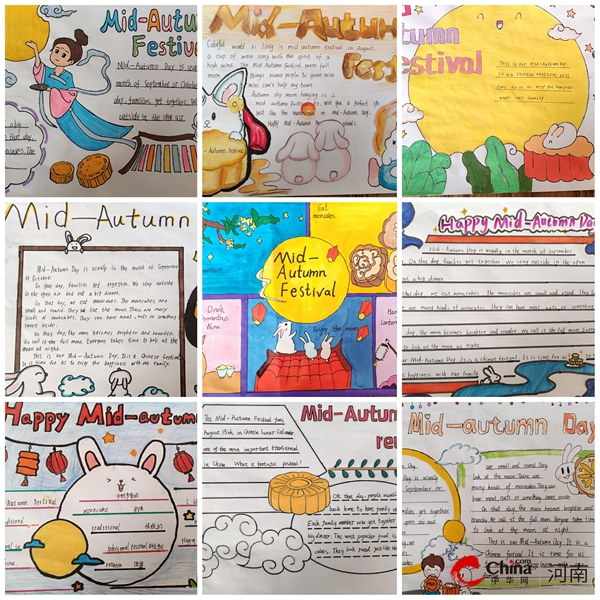 Mid-Autumn
Festiv
Mid-Autumn Day is usu
month of September or October
day, families get together. We
outside in the open air
that day
cakes. The
Mid-Autumn
Fest
Colorful world si ling is mid autumn festival in August.
A cup of wine song with the spirit of a
high wind. The Mid Autumn Festival moon full
moon things round people to
miss can't help my tears.
Autumn sky moon hanging is a
mid autumn festival to wish you a perfect life
just like the moon in Mid Autumn Day.
Happy Mid-Autumn Festival!
Autumn Festival
tumn
estival
This is our Mid-Autumn Day.
It is a Chinese festival. It is
time for us to enjoy the happiness
with our family.
Mid-Autumn
Mid-Autumn Day is usually in the month of September
or October.
On that day, families get together. We stay outside in the
open air and eat a big dinner.
On that day, we eat mooncakes. The mooncakes are
small and round. They look like the moon. There are many
kinds of mooncakes. They can have meat, nuts or something
sweet inside.
On that day, the moon becomes brighter and rounder.
We call it the full moon. Everyone takes time to look at the
moon at night.
This is our Mid-Autumn Day. It is a Chinese festival.
It is time for us to enjoy the happiness with our family.
Eat
mooncakes
Mid-
Autumn
Festival
Drink
Osmanthus
Wine
Enjoy the moon
Lantern
Happy Mid-Autumn Day
Mid-Autumn Day is usually in the month of September
On that day, families get together. We stay outside in the open
a big dinner.
that day, we eat mooncakes. The mooncakes are small and round. They l
are many kinds of mooncakes. They can have meat, nuts or something
day, the moon becomes brighter and rounder. We call it the full moon. Every
to look at the moon at night.
our Mid-Autumn Day. It is a Chinese festival. It is time for us
happiness with our family.
Happy Mid-autumn
Autumn Festival
traditional
mooncake
traditional
传统的
traditional festival
The Mid-Autumn Festival
August 15th in Chinese Lunar Calendar
one of the most important traditional
in China. What a fantastic festival!
Mid-Autumn
re
On that day, people usually
back home to have family
Each family member will get together
big dinner. The most popular food is
cakes. They look just like the
Mid-autumn Day
Day.
Day is usually
September or
families get
are small and round. They
look like the moon. There are
many kinds of mooncakes. They can
have meat, nuts or something sweet inside.
On that day, the moon becomes brighter and
rounder. We call it the full moon. Everyone takes time
to look at the moon at night.
This is our Mid-Autumn Day. It is a
Chinese festival. It is time for us
happiness with
China.com
中华网
河南